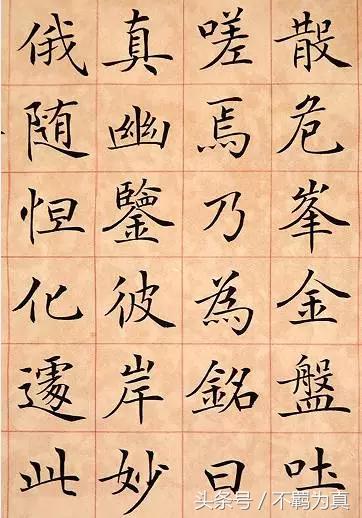 散危峯金盤吐
嗟焉乃為銘曰
真幽鑒彼岸妙
俄随怛化遽此
头条号 / 不羁为真